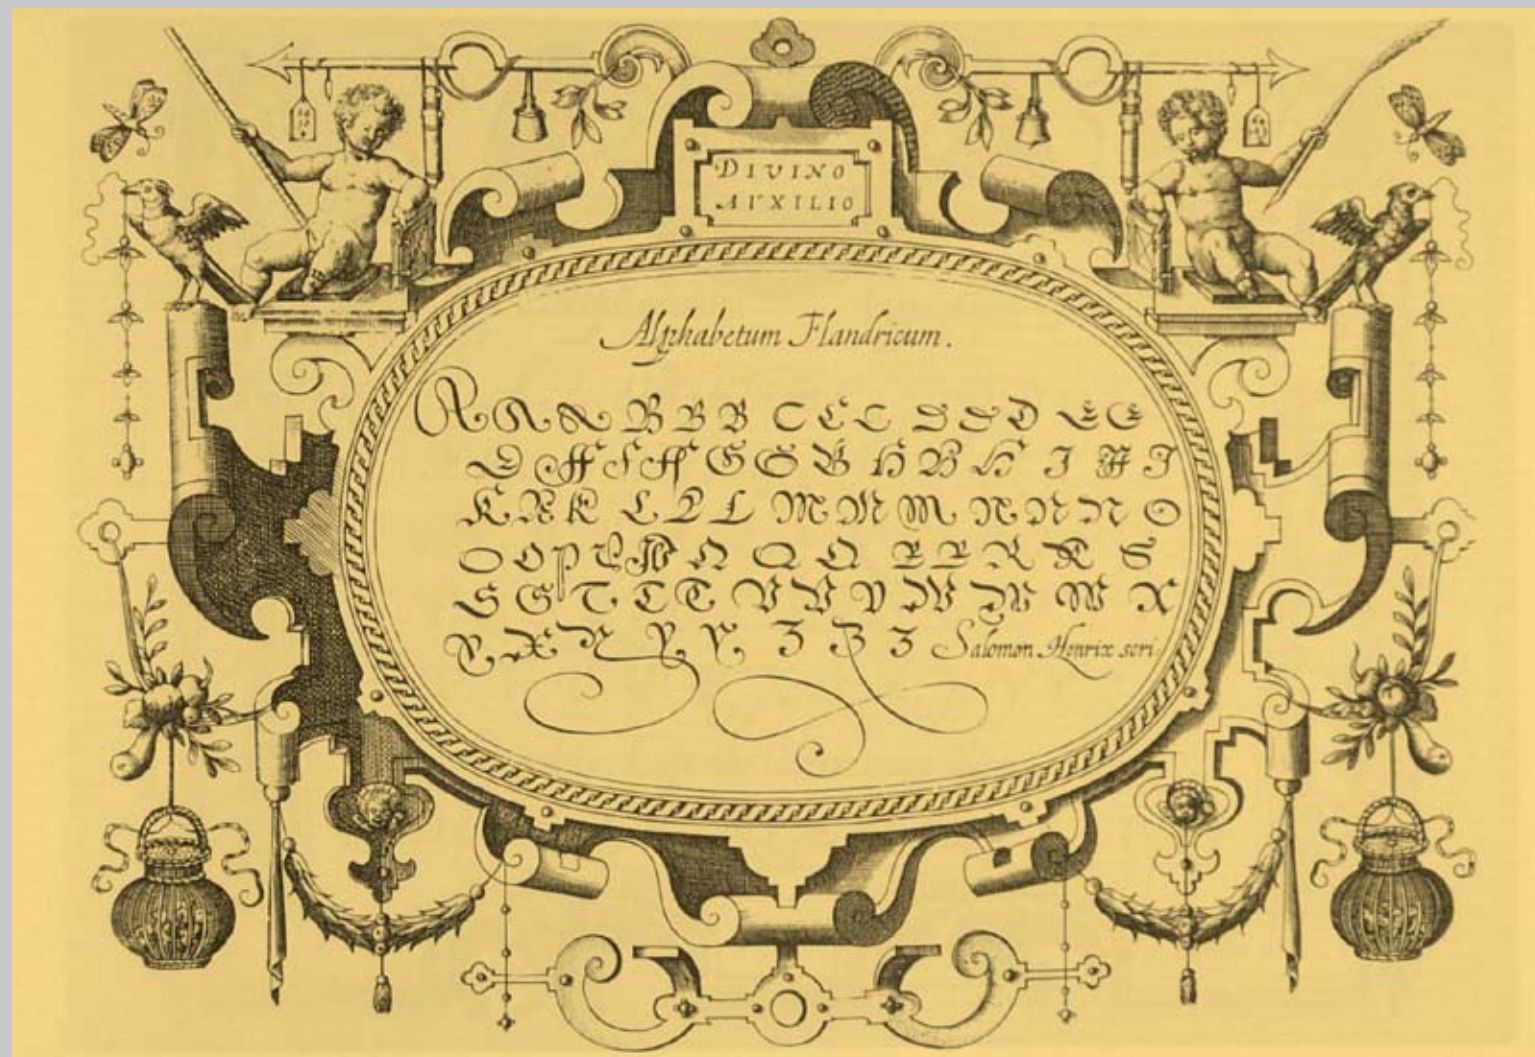 DIVINO
AVXILIO
Alphabetum Flandricum.
A A A B B B C C C D D D E E
E F F F G G G H H H I I I
K K K L L L M M M N N N O
O O P P P Q Q Q R R R R S
S S T T T V V V W W W X
X X Y Y Y Z Z Z Salomon Henrix scri.